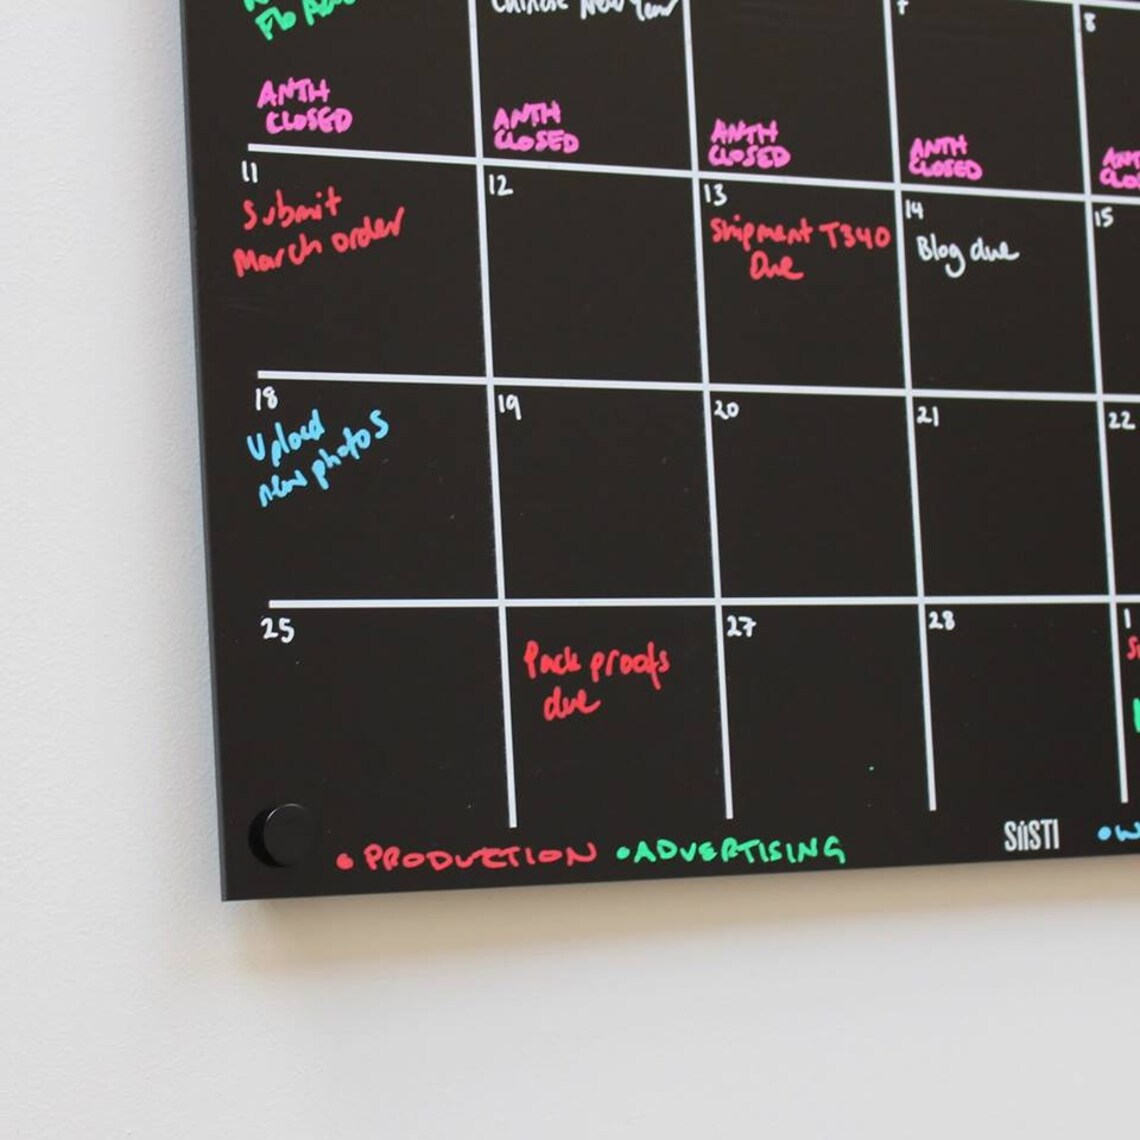 Chinese New Year
7
8
ANTH
CLOSED
ANTH
CLOSED
ANTH
CLOSED
ANTH
CLOSED
11
Submit
March order
12
13
Shipment T340
Due
14
Blog due
15
18
Upload
new photos
19
20
21
22
25
Pack proofs
due
27
28
1
• PRODUCTION • ADVERTISING
SiiSTI